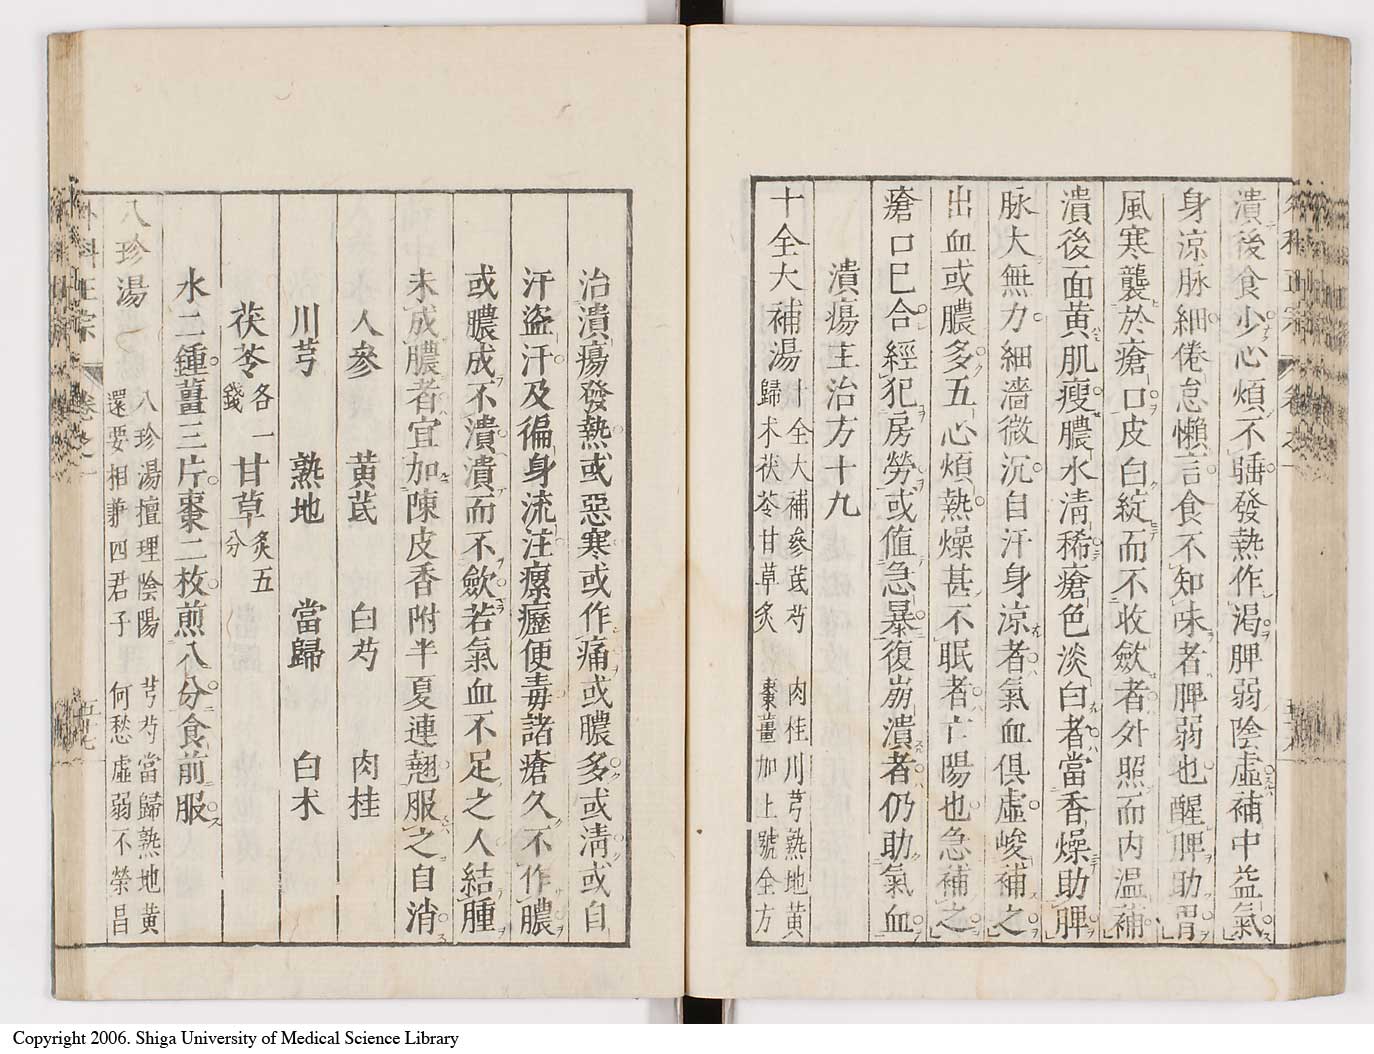 潰後食少心煩不睡發熱作渴脾弱陰虛補中益氣
身涼脉細倦怠懶言食不知味者脾弱也醒脾助胃
風寒襲於瘡口皮白綻而不收斂者外照而内温補
潰後面黄肌瘦膿水清稀瘡色淡白者當香燥助脾
脉大無力細濇微沉自汗身涼者氣血俱虛峻補之
出血或膿多五心煩熱燥甚不眠者亡陽也急補之
瘡口已合經犯房勞或值急暴復崩潰者仍助氣血
潰瘍主治方十九
十全大補湯
十全大補參茋芍 肉桂川芎熟地黄
歸术茯苓甘草炙 棗薑加上號全方
治潰瘍發熱或惡寒或作痛或膿多或清或自
汗盜汗及徧身流注瘰癧便毒諸瘡久不作膿
或膿成不潰潰而不歛若氣血不足之人結腫
未成膿者宜加陳皮香附半夏連翹服之自消
人參 黄茋 白芍 肉桂
川芎 熟地 當歸 白术
茯苓各一錢 甘草炙五分
水二鍾薑三片棗二枚煎八分食前服
八珍湯
八珍湯擅理陰陽 芎芍當歸熟地黄
還要相兼四君子 何愁虛弱不榮昌
外科正宗 卷之 五十七
Copyright 2006. Shiga University of Medical Science Library